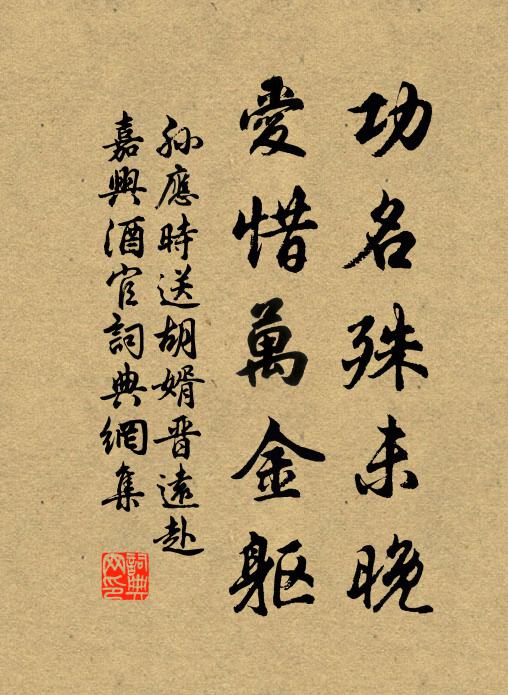 功名殊未晚
愛惜萬金軀
孫應時送胡婿晋遠赴
嘉興酒官詞典網集
詞典
网印